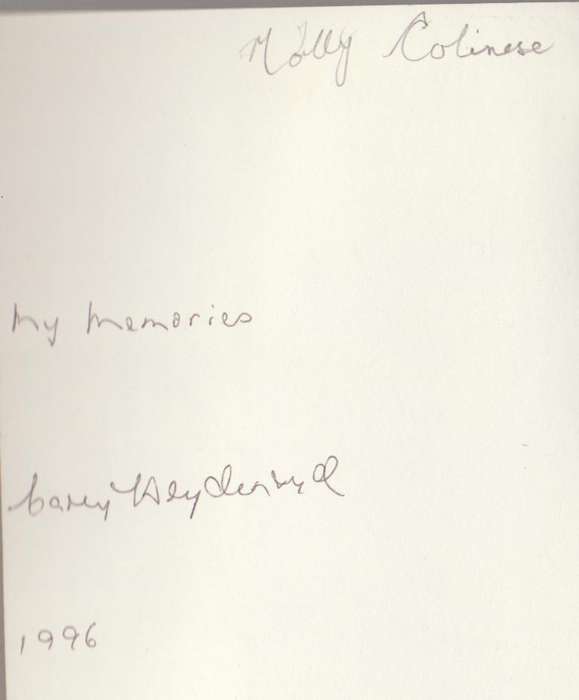 Molly Colinese
My Memories
Carey Heydenrych
1996